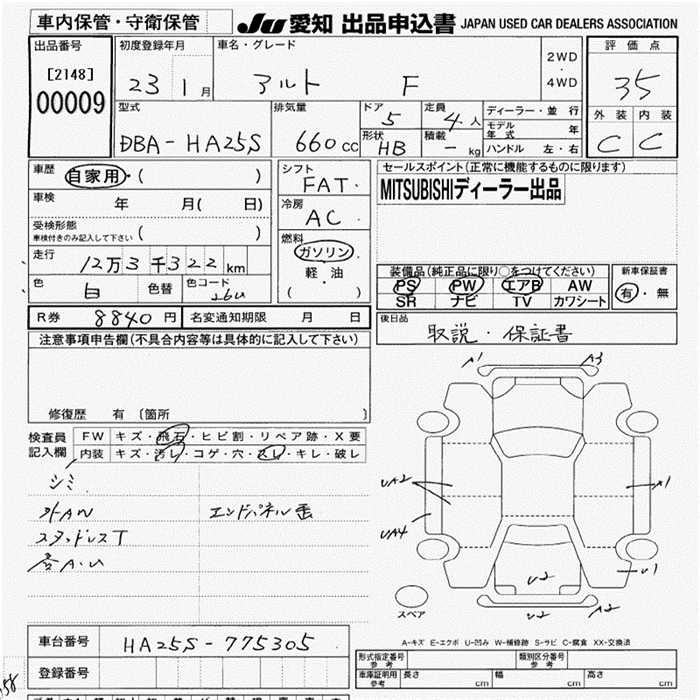 車内保管・守衛保管
JU 愛知 出品申込書 JAPAN USED CAR DEALERS ASSOCIATION
出品番号
[2148]
00009
初度登録年月
23 1月
車名・グレード
アルト F
2WD
・
4WD
評価点
35
外装 内装
C C
型式
DBA-HA25S
排気量
660cc
ドア
5
形状
HB
定員
4人
積載
- kg
ディーラー・並行
モデル年式 年
ハンドル 左・右
車歴 自家用・( )
車検 年 月( 日)
受検形態
車検付きのみ記入して下さい ( )
走行 12万3千322km
色 白 色替 色コード 26U
シフト
FAT・
冷房
AC・
燃料
ガソリン
軽・油
( )
セールスポイント(正常に機能するものに限ります)
MITSUBISHIディーラー出品
装備品(純正品に限り○をつけてください)
PS PW エアB AW
SR ナビ TV カワシート
新車保証書
有・無
R券 8840円 名変通知期限 月 日
後日品
取説・保証書
注意事項申告欄(不具合内容等は具体的に記入して下さい)
修復歴 有 〔箇所 〕
検査員記入欄
FW キズ・飛石・ヒビ割・リペア跡・X要
内装 キズ・汚レ・コゲ・穴・スレ・キレ・破レ
シミ
外AN エンドパネル歪
スタッドレスT
各A.U
A1 A3
UA2 A1
UA4
U2 U1
U2 A2
スペア
A-キズ E-エクボ U-凹み W-補修跡 S-サビ C-腐食 XX-交換済
車台番号 HA25S-775305
登録番号
形式指定番号 参考
類別区分番号 参考
車庫証明用 参考 長さ cm 幅 cm 高さ cm